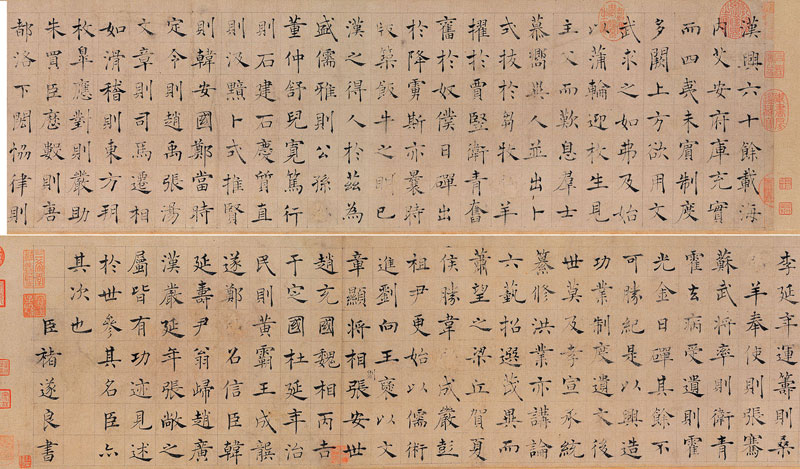 漢興六十餘載海
内艾安府庫充實
而四夷未賓制度
多闕上方欲用文
武求之如弗及始
以蒲輪迎枚生見
主父而歎息羣士
慕嚮異人並出卜
式拔於芻牧 羊
擢於賈竪衛青奮
奮於奴僕日磾出
於降虜斯亦曩時
版築飯牛之朋已
漢之得人於茲為
盛儒雅則公孫
董仲舒兒寬篤行
則石建石慶質直
則汲黯卜式推賢
則韓安國鄭當時
定令則趙禹張湯
文章則司馬遷相
如滑稽則東方朔
枚皋應對則嚴助
朱買臣歷數則唐
都洛下閎協律則
李延年運籌則桑
羊奉使則張騫
蘇武將率則衛青
霍去病受遺則霍
光金日磾其餘不
可勝紀是以興造
功業制度遺文後
世莫及孝宣承統
纂修洪業亦講論
六藝招選茂異而
蕭望之梁丘賀夏
侯勝韋 成嚴彭
祖尹更始以儒術
進劉向王襃以文
章顯將相張安世
趙充國魏相丙吉
于定國杜延年治
民則黃霸王成龔
遂鄭 名信臣韓
延壽尹翁歸趙廣
漢嚴延年張敞之
屬皆有功迹見述
於世參其名臣亦
其次也
臣褚遂良書